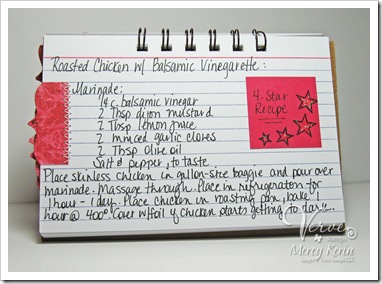 Roasted Chicken w/ Balsamic Vinegarette:
Marinade:
1/4 c. balsamic vinegar
2 Tbsp dijon mustard
2 Tbsp lemon juice
2 minced garlic cloves
2 Tbsp olive oil
Salt & pepper, to taste
4-Star
Recipe
Place skinless chicken in gallon-size baggie and pour over
marinade. Massage through. Place in refrigerator for
1 hour - 1 day. Place chicken in roasting pan, bake 1
hour @ 400°. Cover w/foil if chicken starts getting to dark...
Verve
Mercy Kerin